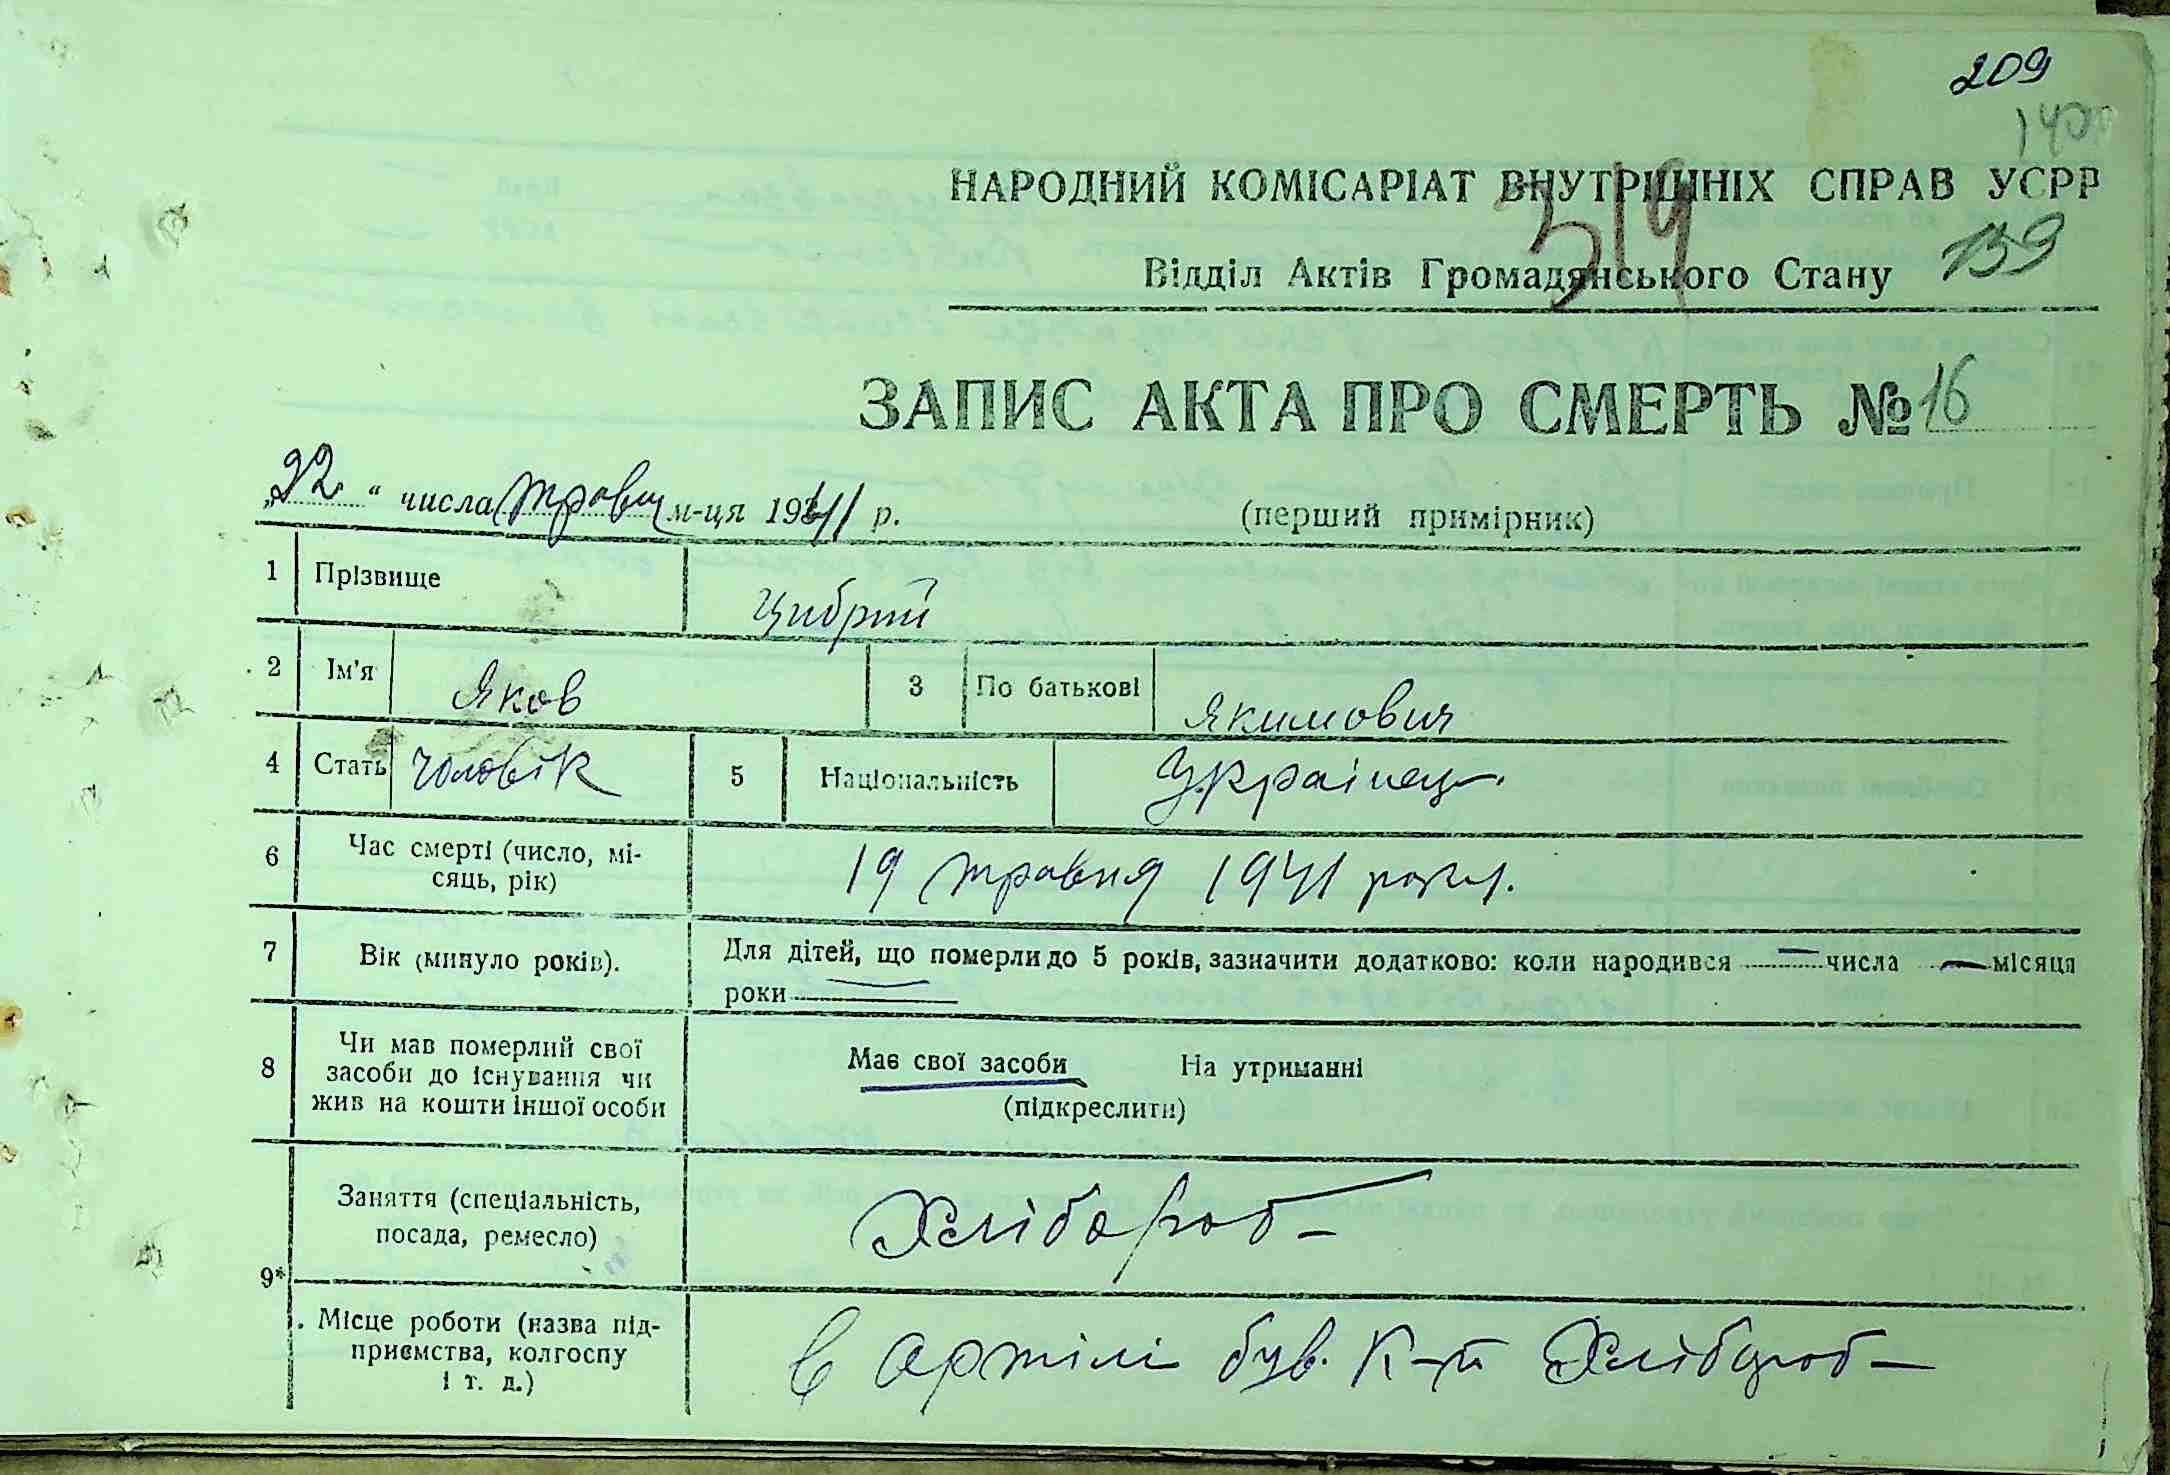 209
НАРОДНИЙ КОМІСАРІАТ ВНУТРІШНІХ СПРАВ УСРР
319
Відділ Актів Громадянського Стану 159
ЗАПИС АКТА ПРО СМЕРТЬ № 16
„22“ числа травня м-ця 1941 р. (перший примірник)
1 Прізвище Цибрій
2 Ім'я Яков 3 По батькові Якимович
4 Стать чоловік 5 Національність Українець
6 Час смерті (число, мі-
сяць, рік) 19 травня 1941 року.
7 Вік (минуло років). Для дітей, що померли до 5 років, зазначити додатково: коли народився — числа — місяця
роки —
8 Чи мав померлий свої
засоби до існування чи
жив на кошти іншої особи
Має свої засоби На утриманні
(підкреслити)
9* Заняття (спеціальність,
посада, ремесло) Хлібороб
Місце роботи (назва під-
приємства, колгоспу
і т. д.) в артілі був. Хлібороб